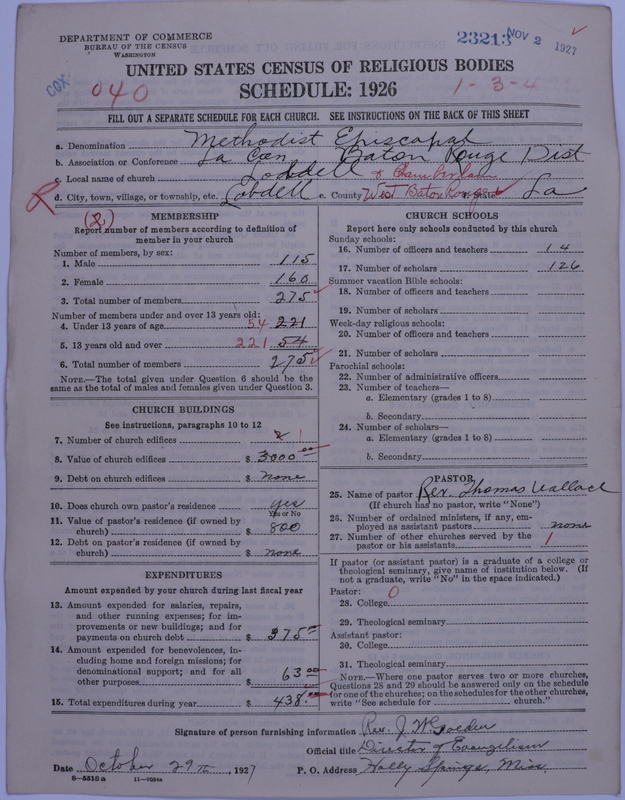 DEPARTMENT OF COMMERCE
BUREAU OF THE CENSUS
WASHINGTON
23213 NOV 2 1927
COX
040
UNITED STATES CENSUS OF RELIGIOUS BODIES
SCHEDULE: 1926
1-3-4
FILL OUT A SEPARATE SCHEDULE FOR EACH CHURCH. SEE INSTRUCTIONS ON THE BACK OF THIS SHEET
a. Denomination Methodist Episcopal
b. Association or Conference La Con Baton Rouge Dist
c. Local name of church Lobdell & Chamberlain
d. City, town, village, or township, etc. Lobdell e. County West Baton Rouge State La
(2)
MEMBERSHIP
Report number of members according to definition of
member in your church
Number of members, by sex:
1. Male 115
2. Female 160
3. Total number of members 275
Number of members under and over 13 years old:
4. Under 13 years of age 54 221
5. 13 years old and over 221 54
6. Total number of members 275
NOTE.—The total given under Question 6 should be the
same as the total of males and females given under Question 3.
CHURCH BUILDINGS
See instructions, paragraphs 10 to 12
7. Number of church edifices 2 1
8. Value of church edifices $ 3000 00
9. Debt on church edifices $ none
10. Does church own pastor's residence yes
Yes or No
11. Value of pastor's residence (if owned by
church) $ 800
12. Debt on pastor's residence (if owned by
church) $ none
EXPENDITURES
Amount expended by your church during last fiscal year
13. Amount expended for salaries, repairs,
and other running expenses; for im-
provements or new buildings; and for
payments on church debt $ 375 00
14. Amount expended for benevolences, in-
cluding home and foreign missions; for
denominational support; and for all
other purposes $ 63 00
15. Total expenditures during year $ 438.00
CHURCH SCHOOLS
Report here only schools conducted by this church
Sunday schools:
16. Number of officers and teachers 14
17. Number of scholars 126
Summer vacation Bible schools:
18. Number of officers and teachers
19. Number of scholars
Week-day religious schools:
20. Number of officers and teachers
21. Number of scholars
Parochial schools:
22. Number of administrative officers
23. Number of teachers—
a. Elementary (grades 1 to 8)
b. Secondary
24. Number of scholars—
a. Elementary (grades 1 to 8)
b. Secondary
PASTOR
25. Name of pastor Rev. Thomas Wallace
(If church has no pastor, write "None")
26. Number of ordained ministers, if any, em-
ployed as assistant pastors none
27. Number of other churches served by the
pastor or his assistants 1
If pastor (or assistant pastor) is a graduate of a college or
theological seminary, give name of institution below. (If
not a graduate, write "No" in the space indicated.)
Pastor: 0
28. College
29. Theological seminary
Assistant pastor:
30. College
31. Theological seminary
NOTE.—Where one pastor serves two or more churches,
Questions 28 and 29 should be answered only on the schedule
for one of the churches; on the schedules for the other churches,
write "See schedule for church."
Signature of person furnishing information Rev. J W Golden
Official title Director of Evangelism
Date October 29th, 1927 P. O. Address Holly Springs, Miss
8-5518a 11-9034a